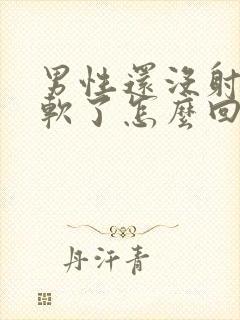 男性還沒射
軟了怎麼回
丹汗青